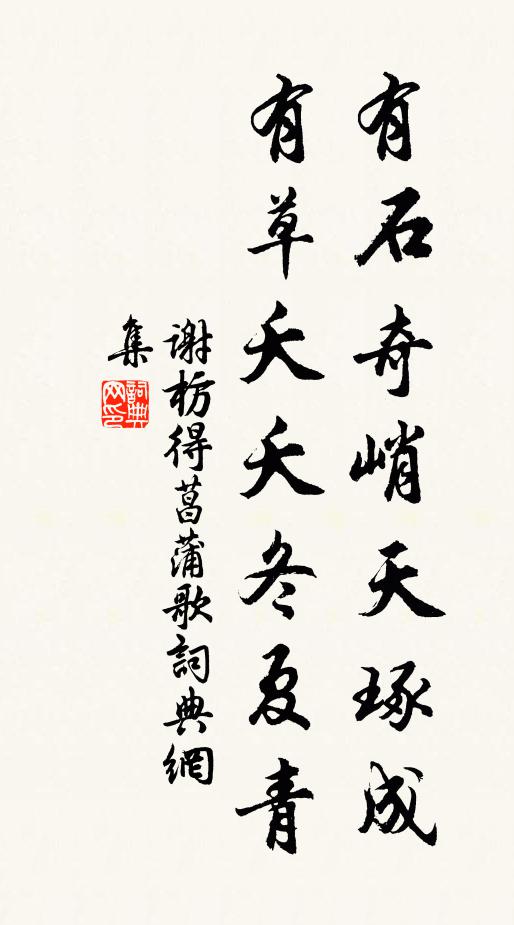 有石奇峭天琢成
有草夭夭冬夏青
謝枋得菖蒲歌詞典網
集
詞典網印